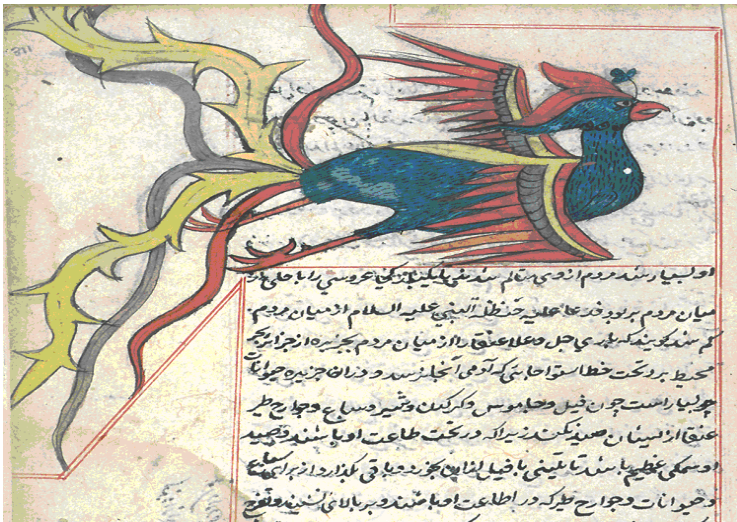 او بسیار شد مردم از وی متالم شدندی عروسی را با حلی از
میان مردم بربود فدعا علیه حنظلة النبی علیه السلام از میان مردم
کم شد کویند که باری جل وعلا عنقا را از میان مردم بجزیره از جزایر بحر
محیط برد تحت خط استوا که آدمی آنجا نرسد و در آن جزیره حیوانات
بسیار است چون فیل و جاموس و کرکدن و شیر و سباع و جوارح طیر
عنقا از ایشان صید نکند زیرا که در تحت طاعت او باشند و صید
او سمکی عظیم باشد یا تنینی یا فیل از این بخورد و باقی بکذارد از برای سباع
و حیوانات و جوارح طیر که در اطاعت او باشند و بر بالای نشیند و تفرج